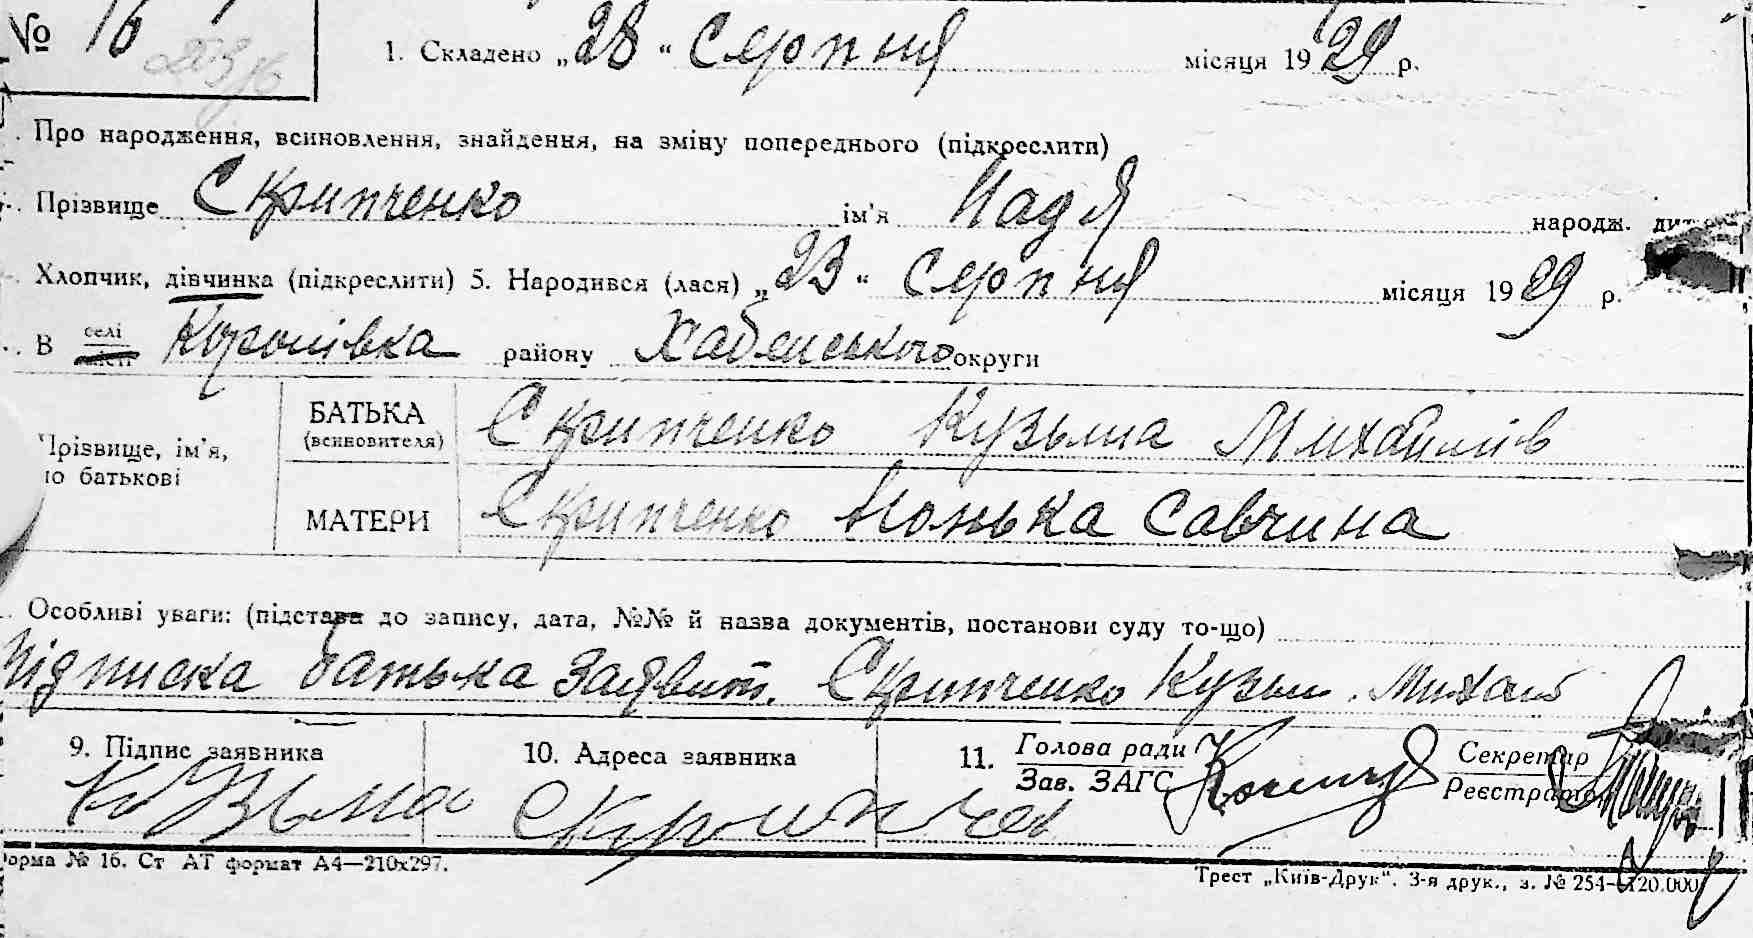 № 16
1. Складено „28“ Серпня місяця 1929 р.
Про народження, всиновлення, знайдення, на зміну попереднього (підкреслити)
Прізвище Скрипченко ім'я Надя народж.
Хлопчик, дівчинка (підкреслити) 5. Народився (лася) „23“ Серпня місяця 1929 р.
В селі Королівка району Хабенського округи
Прізвище, ім'я, по батькові
БАТЬКА (всиновителя) Скрипченко Кузьма Михайлів
МАТЕРИ Скрипченко Монька Савчина
Особливі уваги: (підстава до запису, дата, №№ й назва документів, постанови суду то-що)
Підписка батька Заявит. Скрипченко Кузьм. Михайл
9. Підпис заявника 10. Адреса заявника 11. Голова ради Секретар
Зав. ЗАГС Реєстратор
Кузьма Скрипчен
Форма № 16. Ст АТ формат А4—210х297.
Трест „Київ-Друк“. 3-я друк., з. № 254—120.000